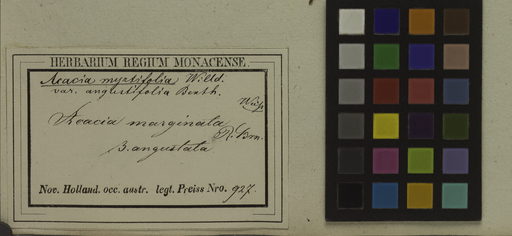 HERBARIUM REGIUM MONACENSE.
Acacia myrtifolia Willd.
var. angustifolia Benth.
Acacia marginata
R. Brn.
β. angustata
Nov. Holland. occ. austr. legt. Preiss Nro. 927.